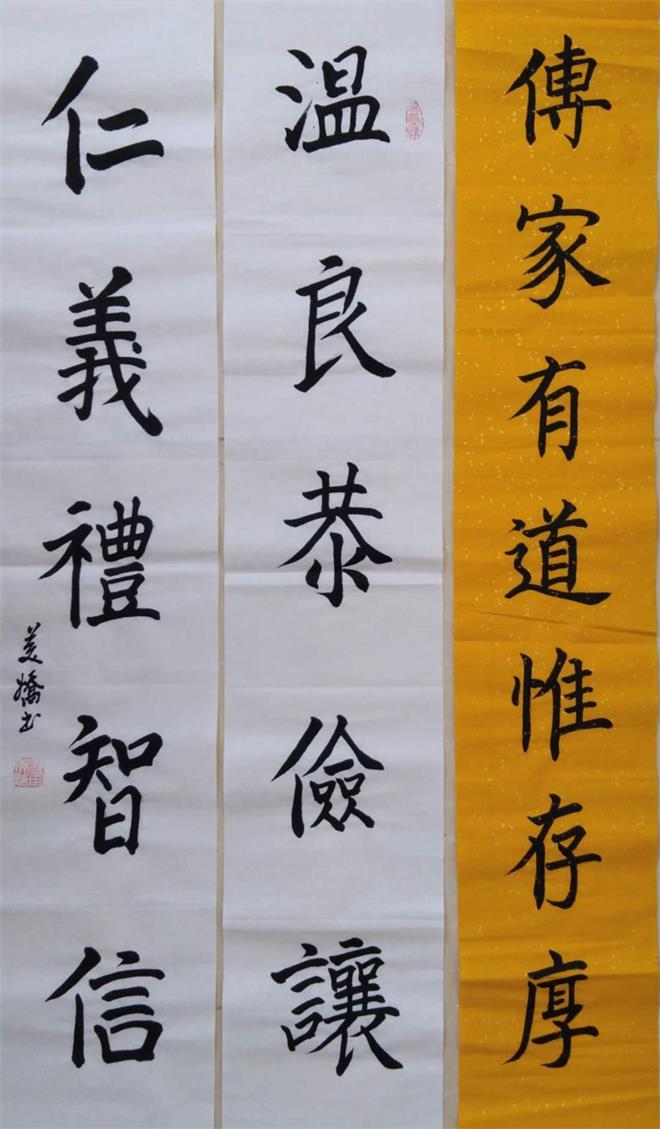 傳家有道惟存厚
温良恭儉讓
仁義禮智信
美嬌书